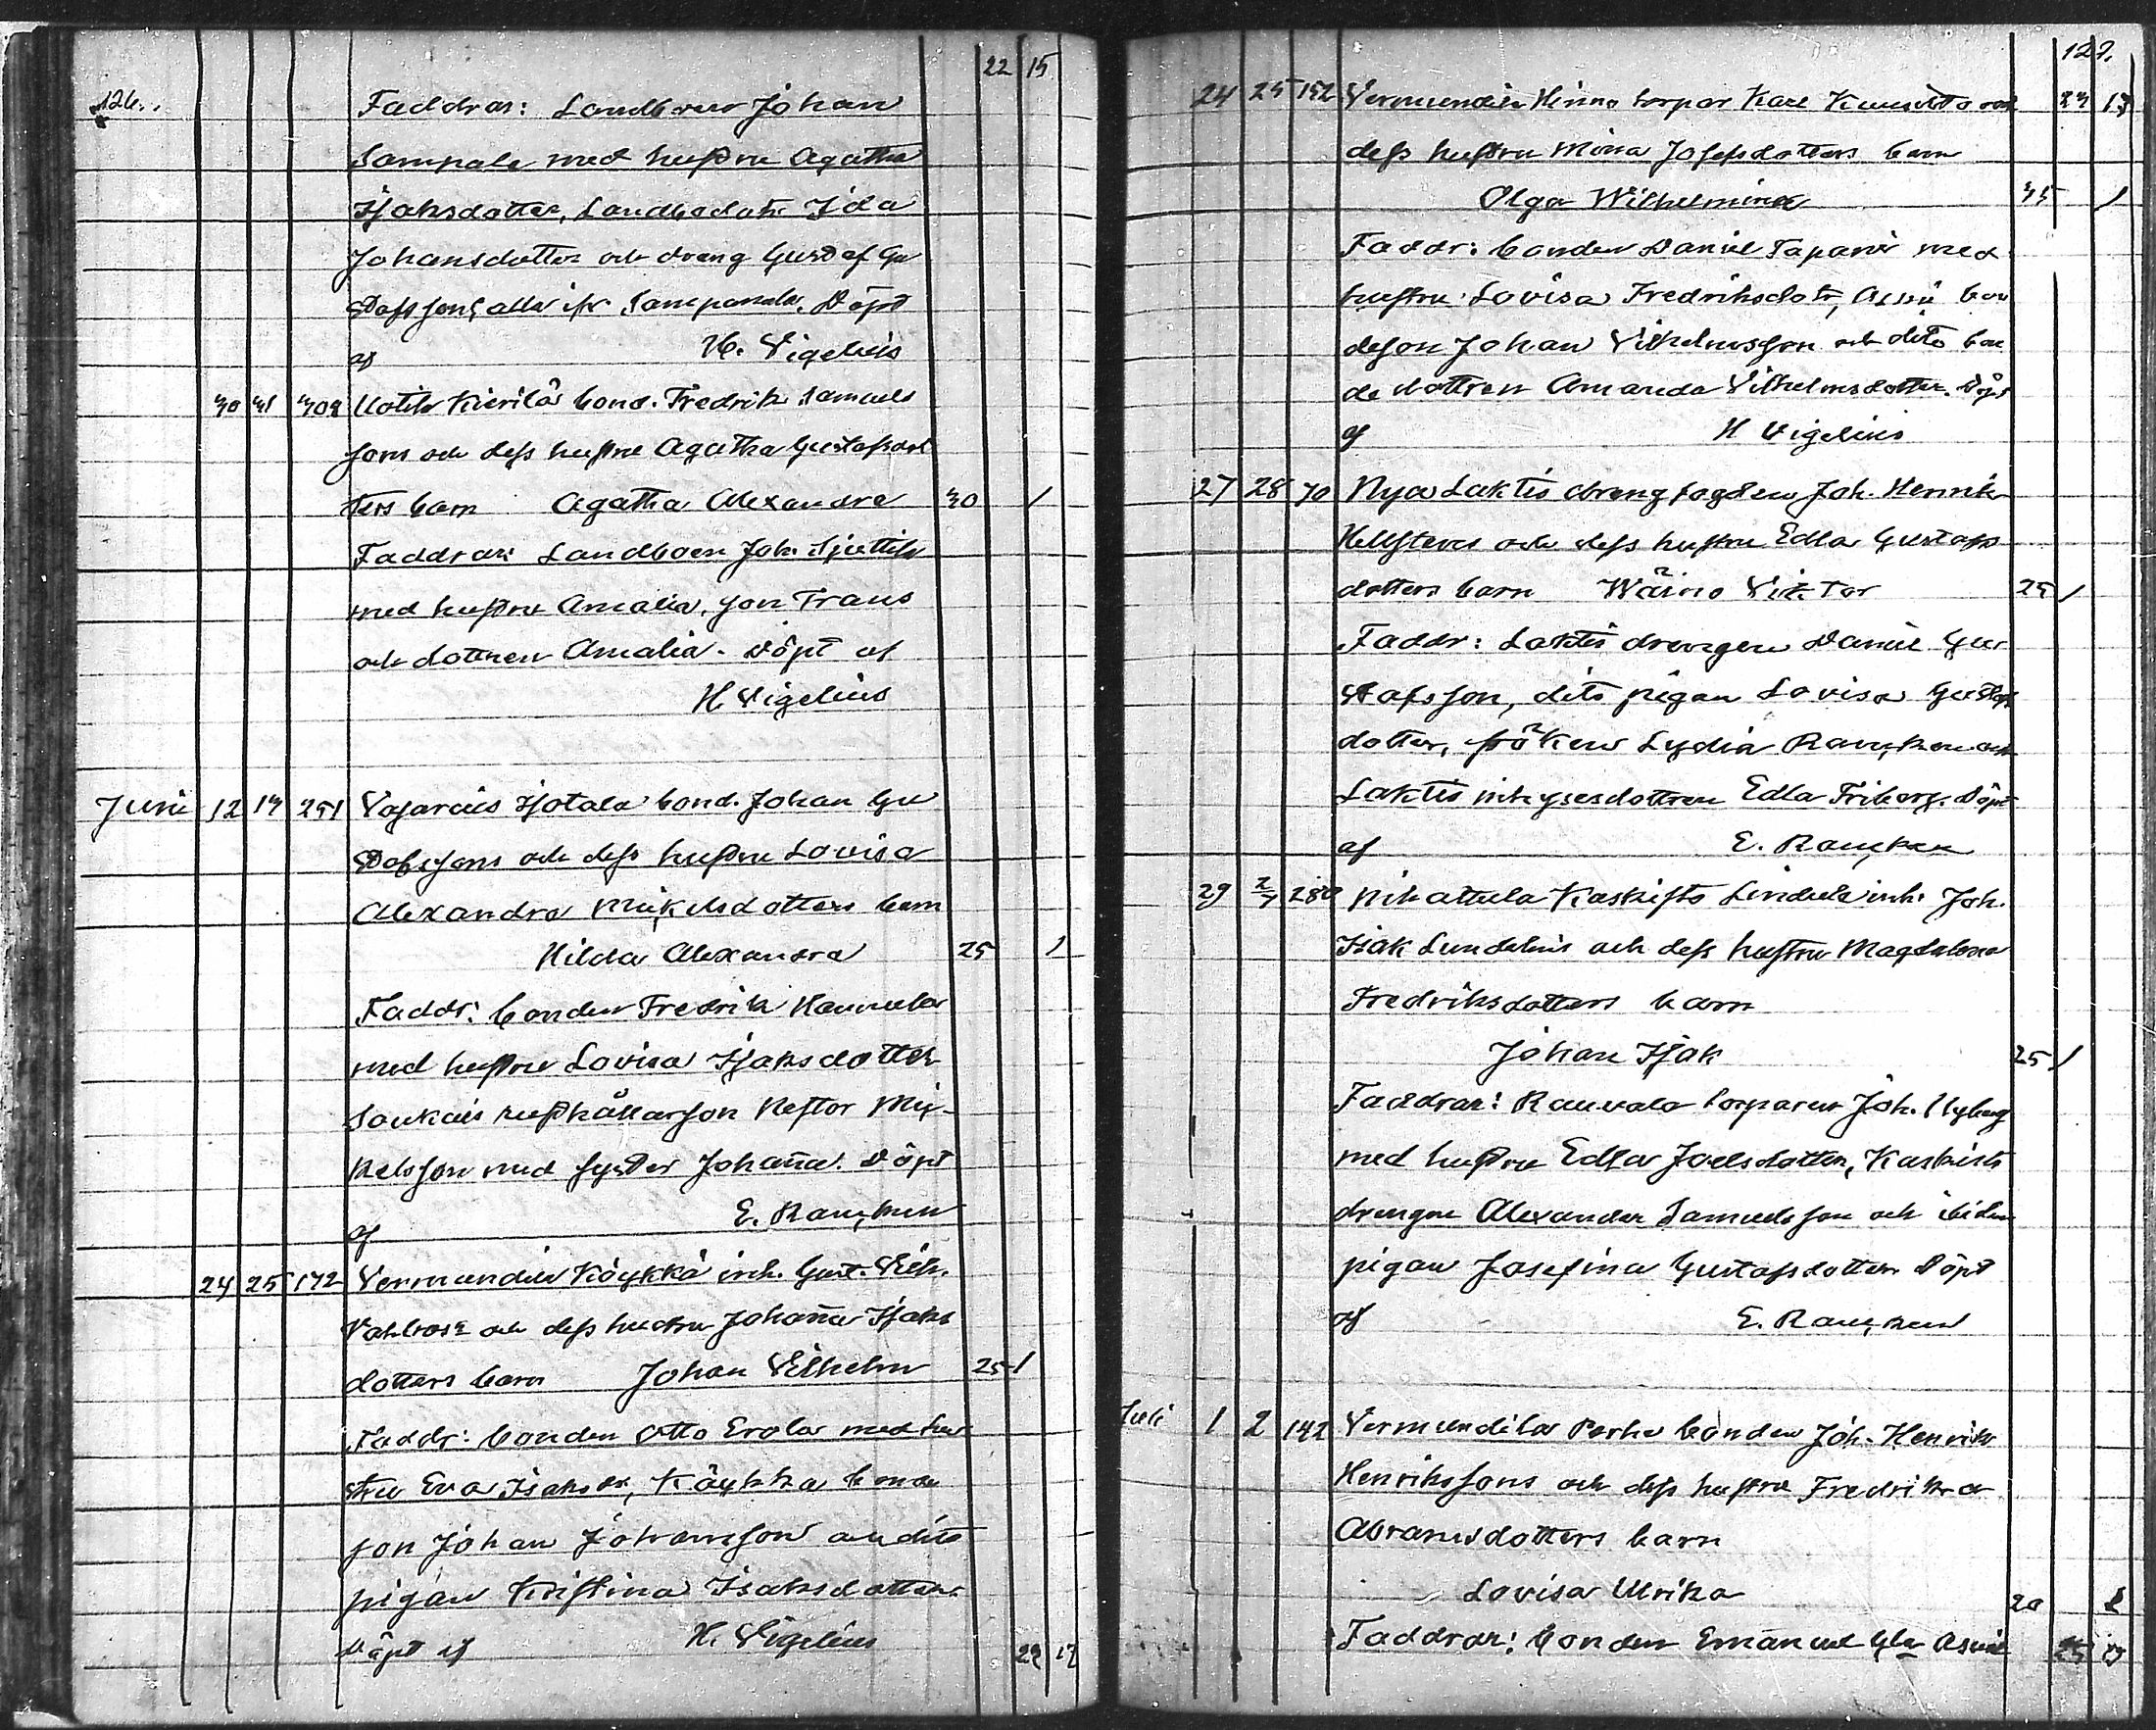 22 15
126.
Faddrar: Landboen Johan
Sampala med hustru Agatha
Isaksdotter, Landbodotr Ida
Johansdotter och dreng Gustaf Gu
stafsson, alla ifr. Sampanala. Döpt
af H. Vigelius
30 31 309 Kotila Kierilä bond. Fredrik Samuels
sons och dess hustru Agatha Gustafsdot
ters barn Agatha Alexandra 30 1
Faddrar: Landboen Joh. Sjuttila
med hustru Amalia, son Frans
och dottren Amalia. Döpt af
H. Vigelius
Juni 12 14 251 Vajarais Isotala bond. Johan Gu
stafssons och dess hustru Lovisa
Alexandra Mikelsdotters barn
Hilda Alexandra 25 1
Faddr: bonden Fredrik Hannula
med hustru Lovisa Isaksdotter
Soukais rusthållarson Nestor Mi-
kelsson med syster Johanna. Döpt
af E. Rancken
24 25 172 Vermundila Köykkä inh. Gust. Vilh.
och dess hustru Johanna Isaks
dotters barn Johan Vilhelm 25 1
Faddr: bonden Otto Erola med hu
stru Eva Isaksdr, Köykkä bonde
son Johan Johansson och dito
pigan Kristina Isaksdotter
Döpt af H. Vigelius 29 17
127.
24 25 152 Vermundila Hinno torpar Karl och 29 17
dess hustru Mina Josefsdotters barn
Olga Wilhelmina 35 1
Faddr: bonden Daniel Tapani med
hustru Lovisa Fredriksdotr, bon
deson Johan Vilhelmsson och dito bon
de dottren Amanda Vilhelmsdotter. Döpt
af H Vigelius
27 28 70 Nya Laktis drengfogden Joh. Henrik
Hellstens och dess hustru Edla Gustafs
dotters barn Wäino Viktor 25 1
Faddr: Laktis drengen Daniel Gu
stafsson, dito pigan Lovisa Gustafs
dotter, fröken Lydia Rancken och
Laktis inhysesdottren Edla Friberg. Döpt
af E. Rancken
29 2/7 280 Nihattula Kaskisto Lindula inh. Joh.
Isak Lundelins och dess hustru Magdalena
Fredriksdotters barn
Johan Isak 25 1
Faddrar: Rauvola torparen Joh. Nyberg
med hustru Edla Joelsdotter, Kaskisto
drengen Alexander Samuelsson och ibidem
pigan Josefina Gustafsdotter Döpt
af E. Rancken
Juli 1 2 142 Vermundila Perho bonden Joh. Henrik
Henrikssons och dess hustru Fredrika
Abramsdotters barn
Lovisa Ulrika 20 1
Faddrar: bonden Emanuel